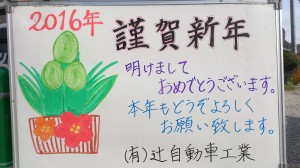 2016年
謹賀新年
明けまして
おめでとうございます。
本年もどうぞよろしく
お願い致します。
(有)辻自動車工業